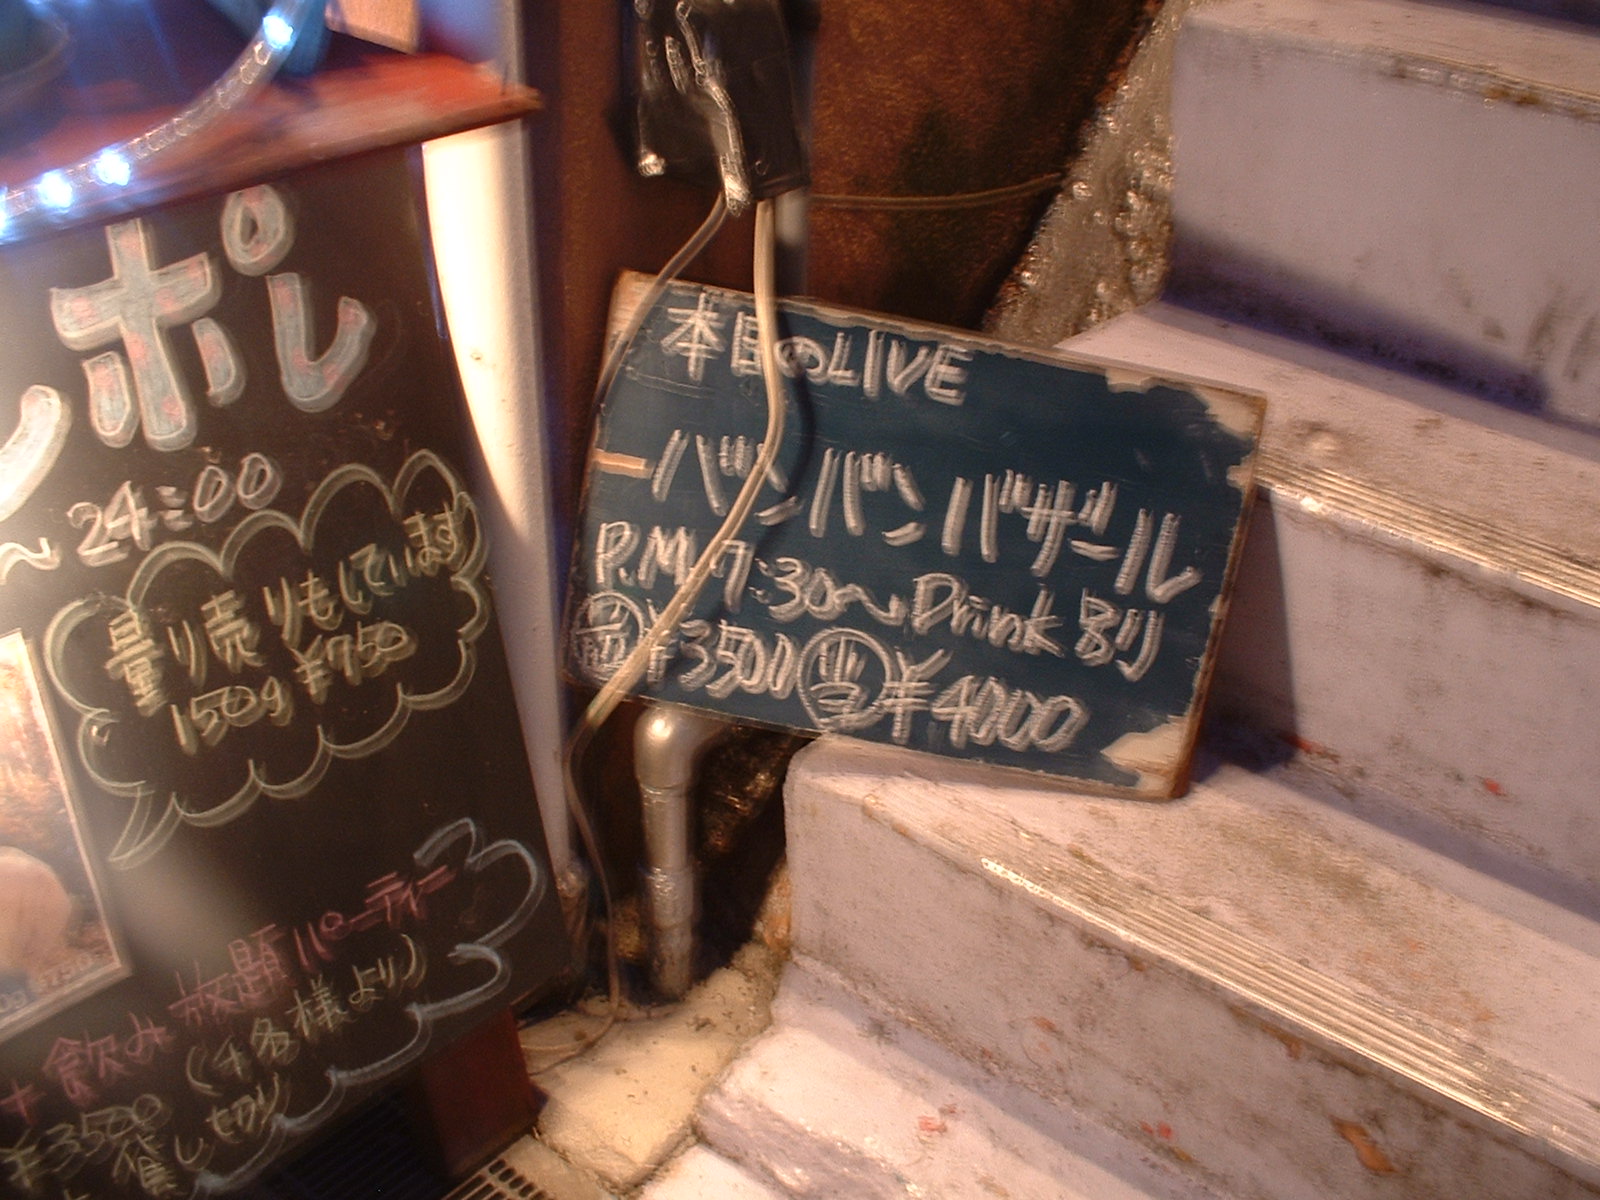 ポレ
～24:00
量り売りもしています
150g ¥750
+飲み放題パーティー
(千名様より)
¥3500 貸し切り
本日のLIVE
バンバンバザール
P.M.7:30～Drink別
前¥3500当¥4000